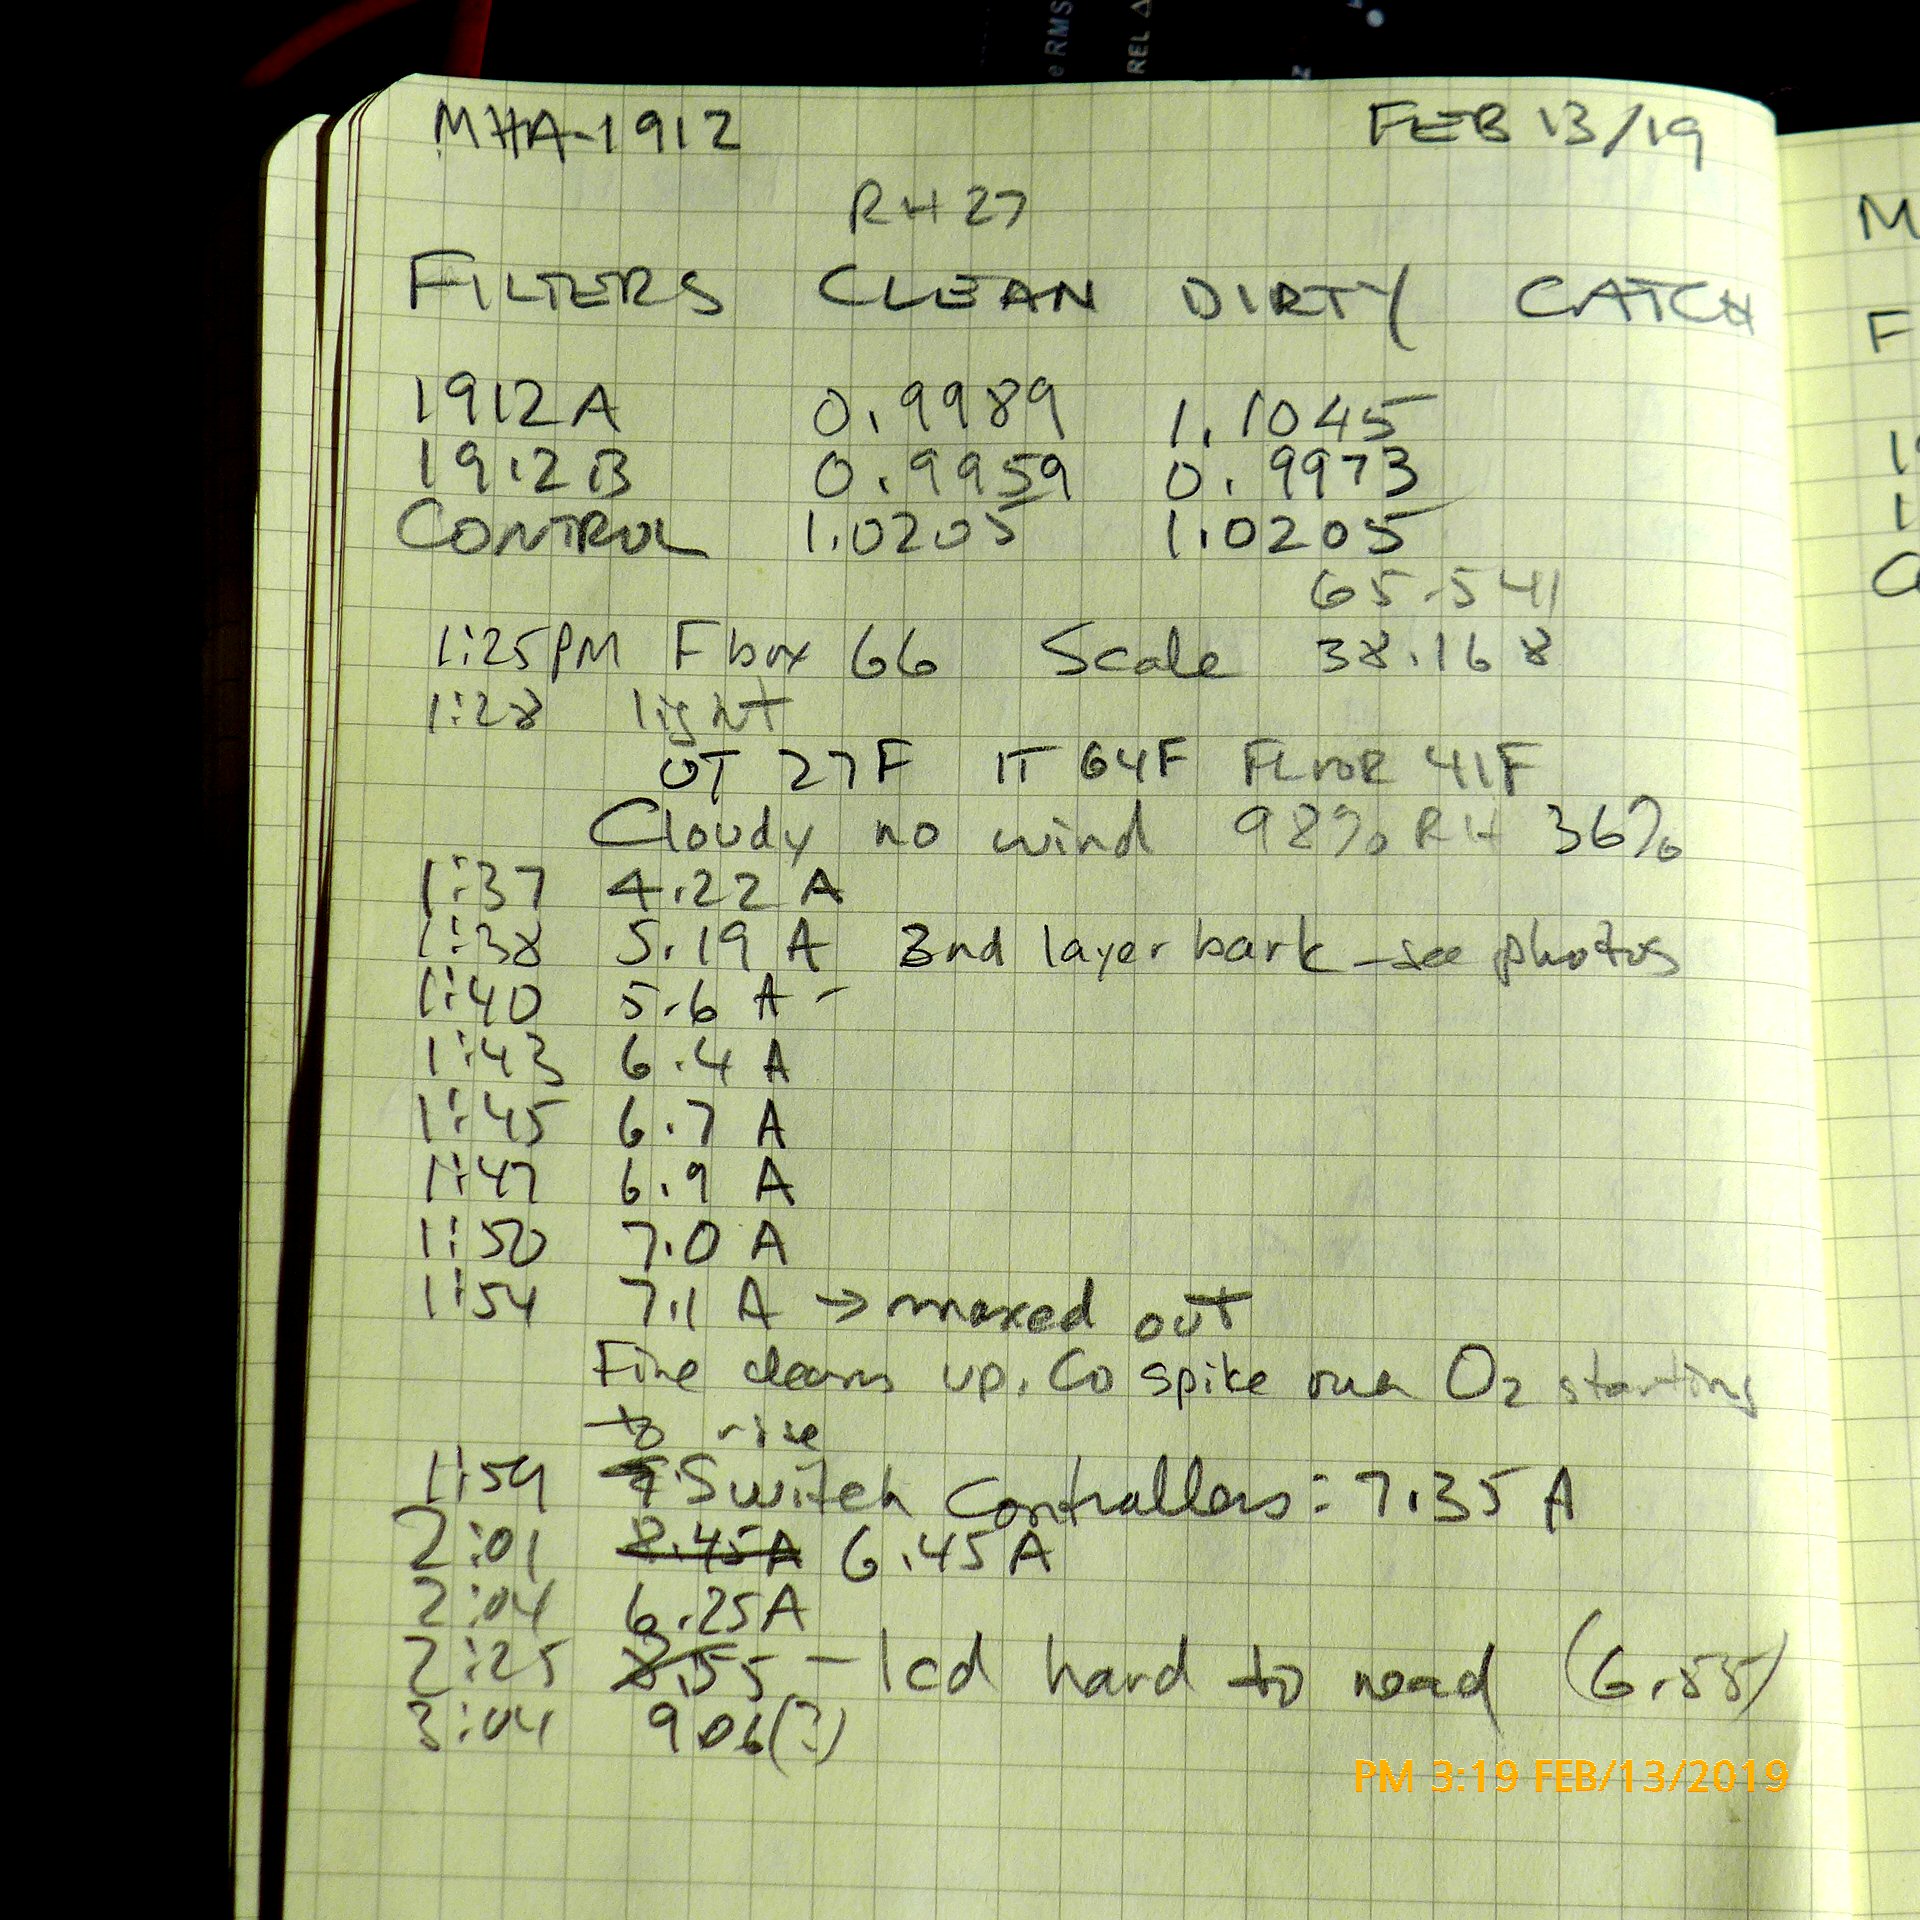 eRMS
REL Δ
MHA-1912 FEB 13/19
RH 27
FILTERS CLEAN DIRTY CATCH
1912A 0.9989 1.1045
1912B 0.9959 0.9973
CONTROL 1.0205 1.0205
65.541
1:25PM Fbox 66 Scale 38.168
1:28 light
OT 27F IT 64F FLOOR 41F
Cloudy no wind 98% RH 36%
1:37 4.22 A
1:38 5.19 A 2nd layer bark - see photos
1:40 5.6 A -
1:43 6.4 A
1:45 6.7 A
1:47 6.9 A
1:50 7.0 A
1:54 7.1 A → maxed out
Fire cleans up. CO spike over O2 starting
to rise
1:59 Switch Controllers: 7.35 A
2:01 8.45A 6.45A
2:04 6.25A
2:25 8.55 - lcd hard to read (6.55)
3:04 906(?)
PM 3:19 FEB/13/2019
M
F
19
1
C